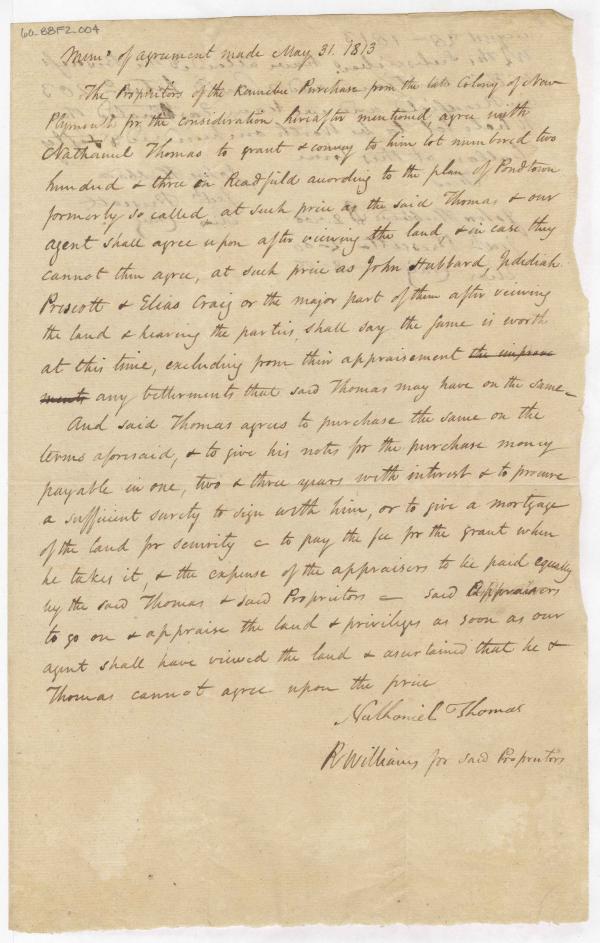 60-88F2-004
Memo of agreement made May 31. 1813
The Proprietors of the Kennebec Purchase from the late Colony of New
Plymouth for the consideration hereafter mentioned, agree with
Nathaniel Thomas to grant & convey to him lot numbered two
hundred & three in Readfield according to the plan of Pondtown
formerly so called, at such price as the said Thomas & our
agent shall agree upon after viewing the land, & in case they
cannot then agree, at such price as John Hubbard, Jedediah
Prescott & Elias Craig or the major part of them after viewing
the land & hearing the parties, shall say the same is worth
at this time, excluding from their appraisement the improve
ments any betterments that said Thomas may have on the same =
And said Thomas agrees to purchase the same on the
terms aforesaid, & to give his notes for the purchase money
payable in one, two & three years with interest & to procure
a sufficient surety to sign with him, or to give a mortgage
of the land for security = to pay the fee for the grant when
he takes it, & the expense of the appraisers to be paid equally
by the said Thomas & said Proprietors = said Appraisers
to go on & appraise the land & privileges as soon as our
agent shall have viewed the land & ascertained that he &
Thomas cannot agree upon the price
Nathaniel Thomas
R Williams for said Proprietors